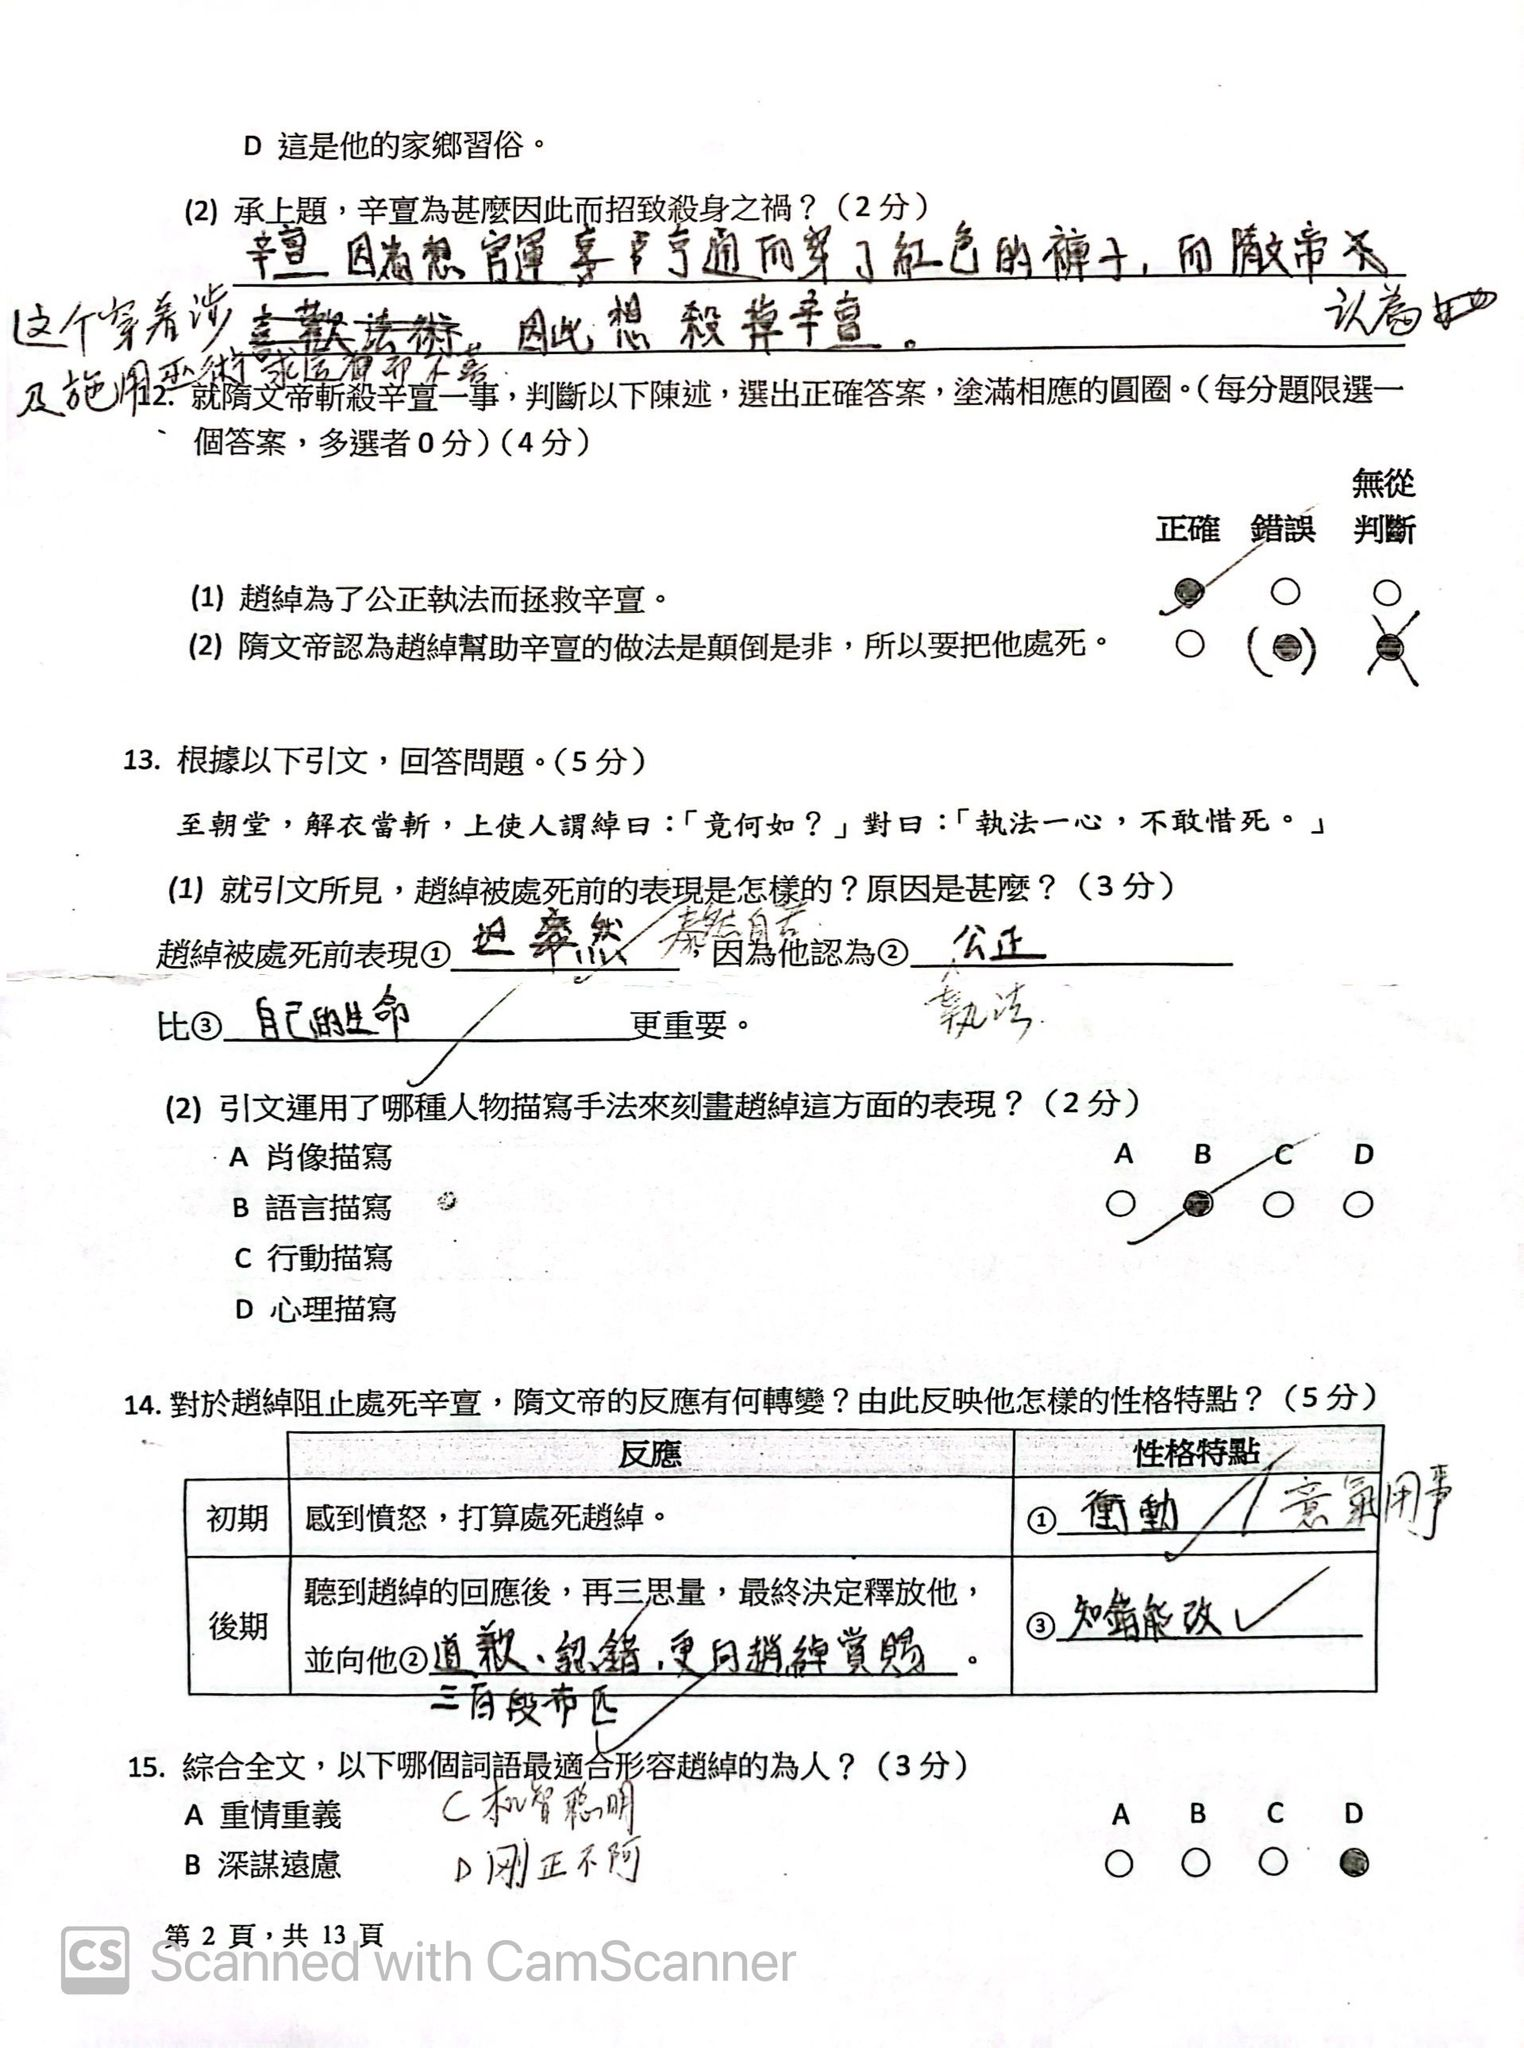 D 這是他的家鄉習俗。
(2) 承上題，辛亶為甚麼因此而招致殺身之禍？（2 分）
辛亶 因為想 官運 亨通而穿了紅色的褲子，而隋文帝不
这个穿着涉 喜歡法術，因此想殺掉辛亶。 认為
及施用巫術
12. 就隋文帝斬殺辛亶一事，判斷以下陳述，選出正確答案，塗滿相應的圓圈。（每分題限選一
個答案，多選者 0 分）（4 分）
無從
正確 錯誤 判斷
(1) 趙綽為了公正執法而拯救辛亶。
(2) 隋文帝認為趙綽幫助辛亶的做法是顛倒是非，所以要把他處死。
13. 根據以下引文，回答問題。（5 分）
至朝堂，解衣當斬，上使人謂綽曰：「竟何如？」對曰：「執法一心，不敢惜死。」
(1) 就引文所見，趙綽被處死前的表現是怎樣的？原因是甚麼？（3 分）
泰然自若
趙綽被處死前表現① 泰然，因為他認為② 公正
執法
比③ 自己的生命 更重要。
(2) 引文運用了哪種人物描寫手法來刻畫趙綽這方面的表現？（2 分）
A 肖像描寫 A B C D
B 語言描寫
C 行動描寫
D 心理描寫
14. 對於趙綽阻止處死辛亶，隋文帝的反應有何轉變？由此反映他怎樣的性格特點？（5 分）
反應 性格特點
初期 感到憤怒，打算處死趙綽。 ① 衝動 意氣用事
聽到趙綽的回應後，再三思量，最終決定釋放他，
後期 ③ 知錯能改
並向他② 道歉、認錯，更向趙綽賞賜。
三百段布匹
15. 綜合全文，以下哪個詞語最適合形容趙綽的為人？（3 分）
A 重情重義 C 机智聪明 A B C D
B 深謀遠慮 D 剛正不阿
第 2 頁，共 13 頁
CS Scanned with CamScanner